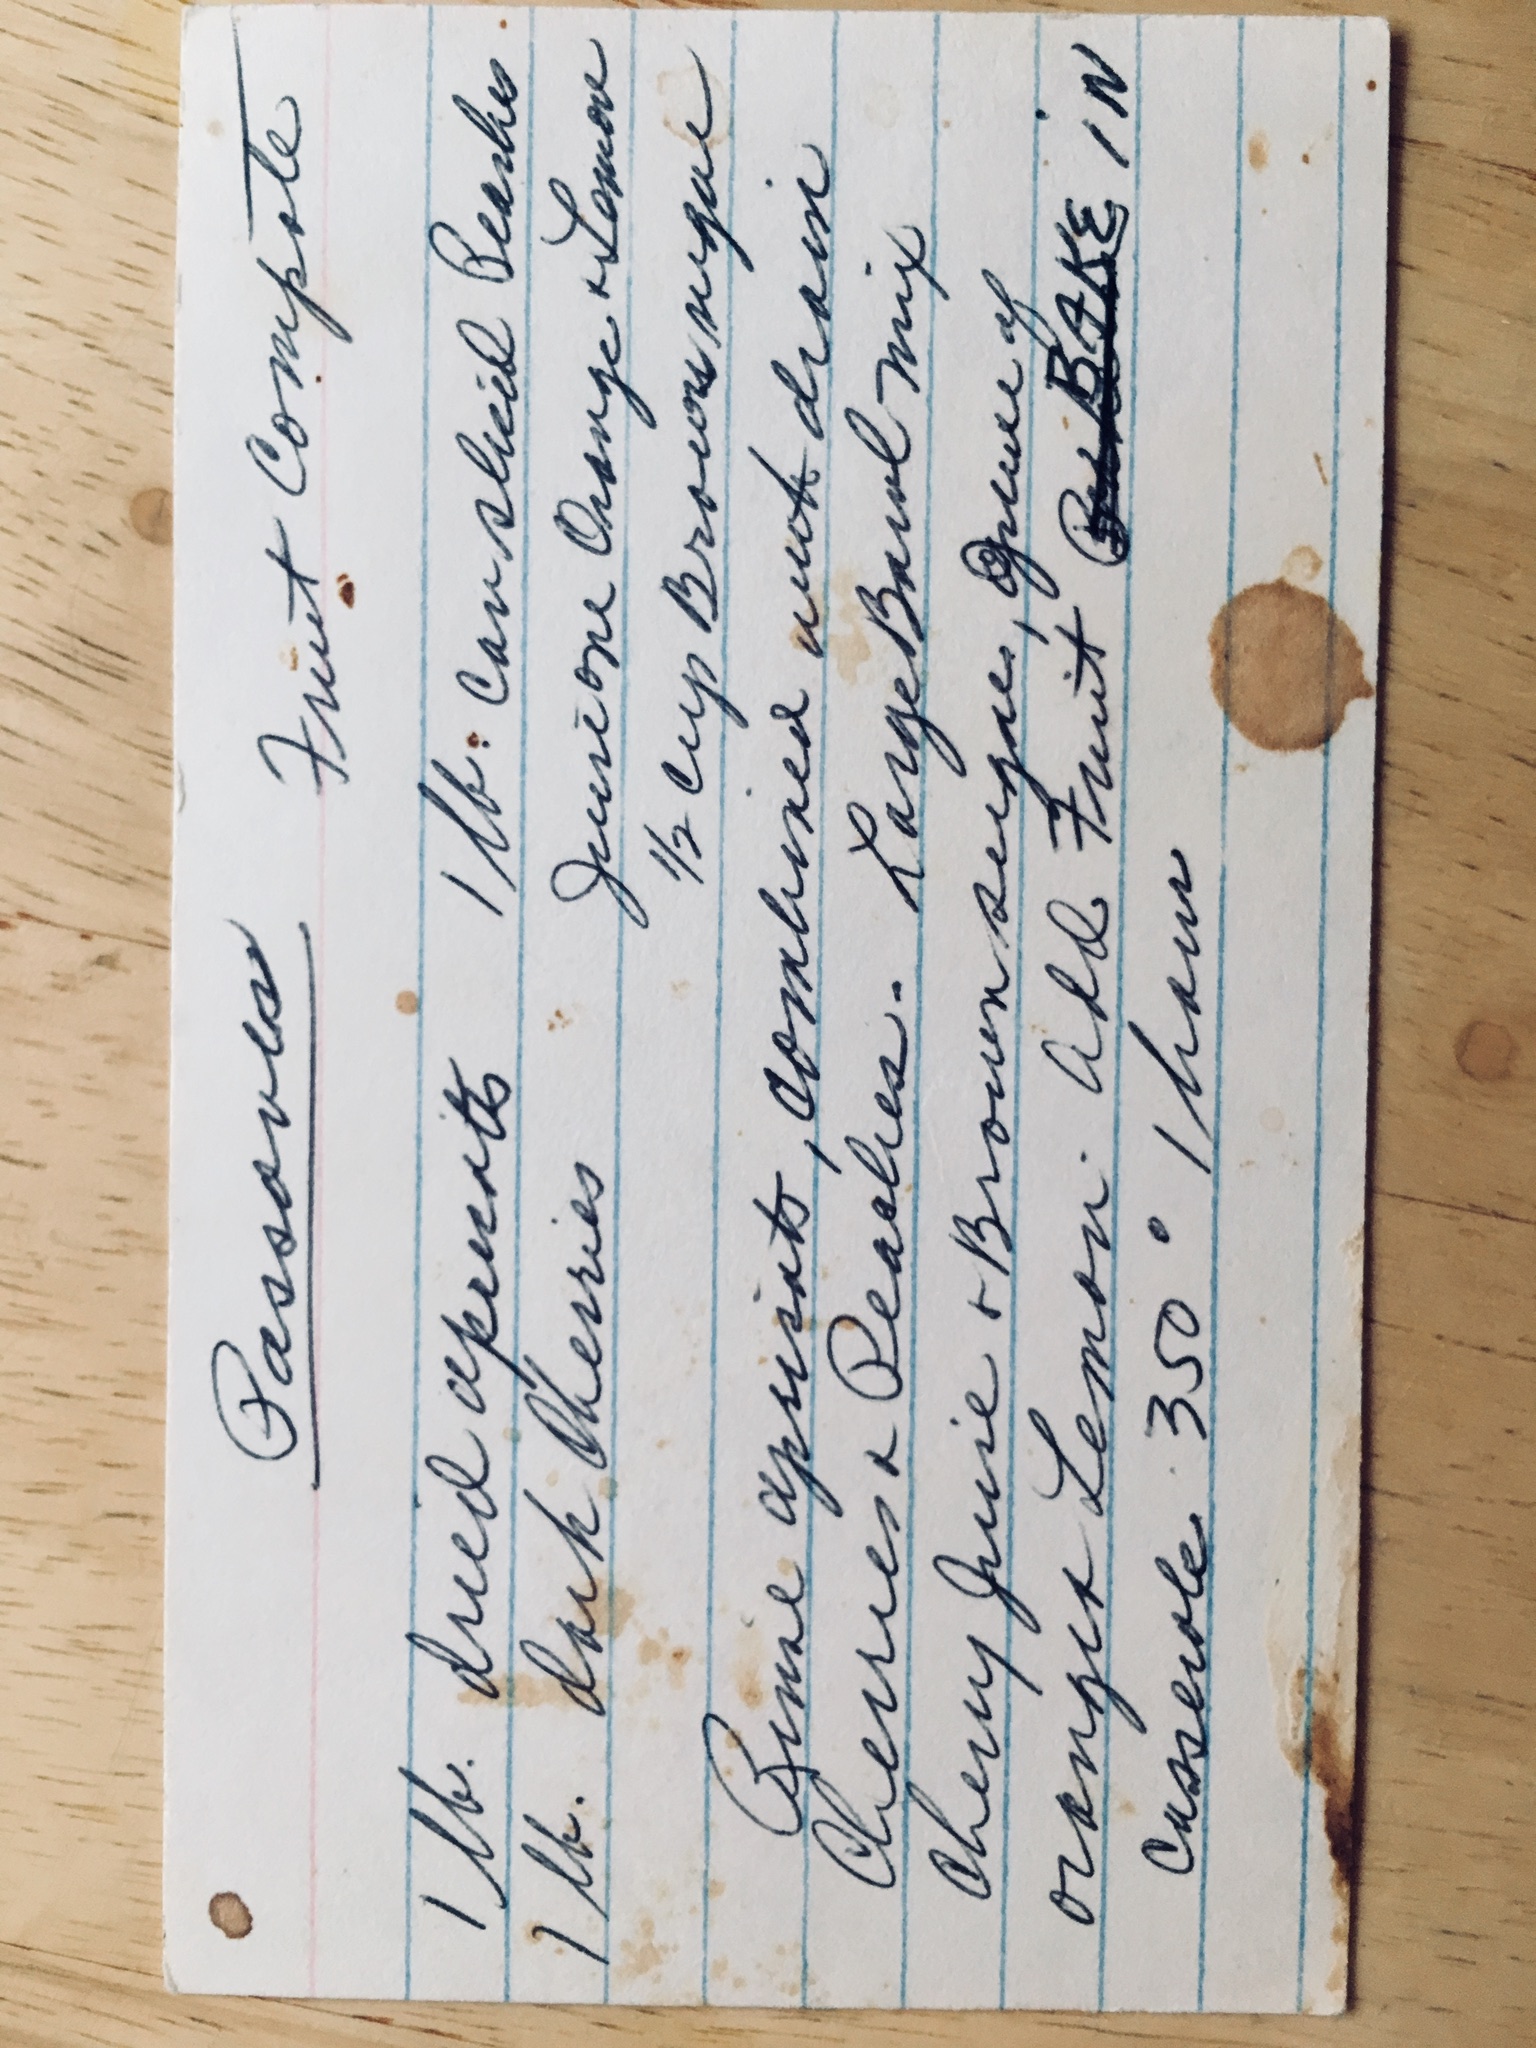 Passover Fruit Compote
1 lb. dried apricots 1 lb. can sliced Peaches
1 lb. dark Cherries Juice one Orange + Lemon
1/2 cup Brown sugar
Rinse apricots, combined with drain
Cherries + Peaches. Large Bowl mix
Cherry Juice + Brown sugar, Juice of
orange + Lemon. Add Fruit BAKE IN
Casserole. 350° 1 hour